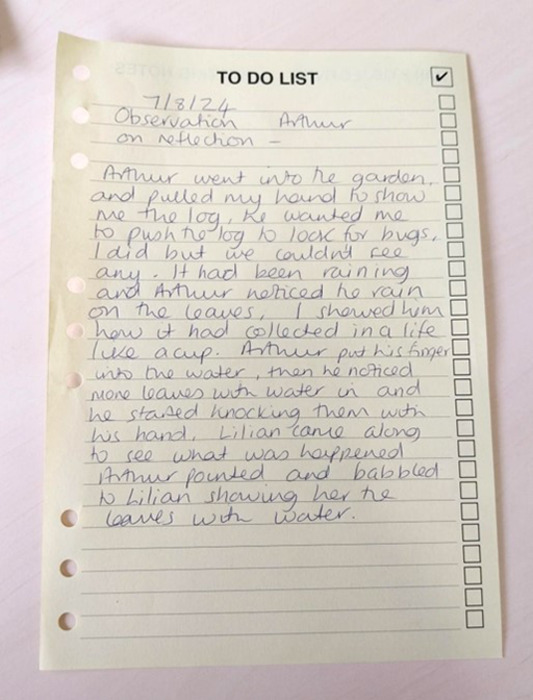 TO DO LIST
7/8/24
Observation Arthur
on reflection -
Arthur went into the garden,
and pulled my hand to show
me the log, he wanted me
to push the log to look for bugs,
I did but we couldn't see
any. It had been raining
and Arthur noticed the rain
on the leaves, I showed him
how it had collected in a life
like a cup. Arthur put his finger
into the water, then he noticed
more leaves with water in and
he started knocking them with
his hand. Lilian came along
to see what was happened
Arthur pointed and babbled
to Lilian showing her the
leaves with water.